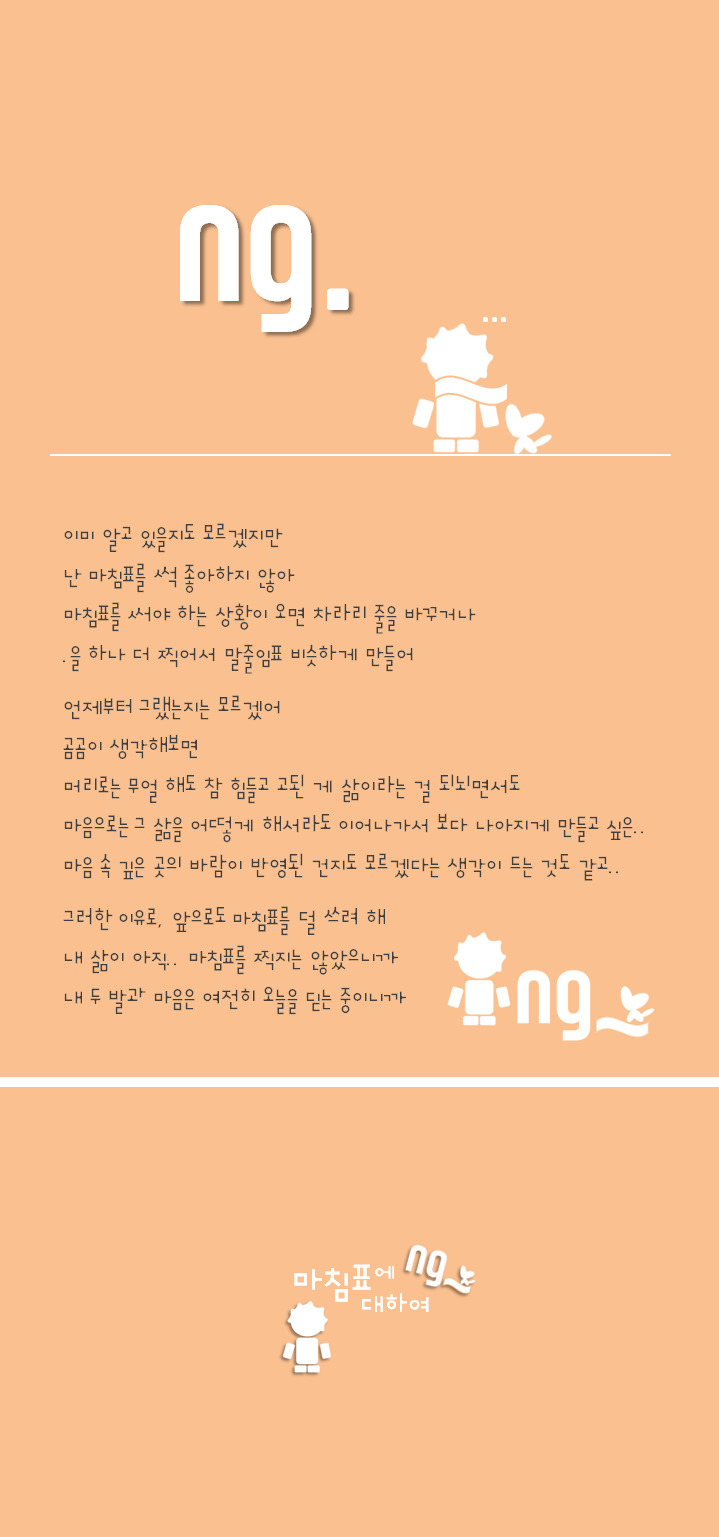 ng.
...
이미 알고 있을지도 모르겠지만
난 마침표를 썩 좋아하지 않아
마침표를 써야 하는 상황이 오면 차라리 줄을 바꾸거나
.을 하나 더 찍어서 말줄임표 비슷하게 만들어
언제부터 그랬는지는 모르겠어
곰곰이 생각해보면
머리로는 무얼 해도 참 힘들고 고된 게 삶이라는 걸 되뇌면서도
마음으로는 그 삶을 어떻게 해서라도 이어나가서 보다 나아지게 만들고 싶은..
마음 속 깊은 곳의 바람이 반영된 건지도 모르겠다는 생각이 드는 것도 같고..
그러한 이유로, 앞으로도 마침표를 덜 쓰려 해
내 삶이 아직.. 마침표를 찍지는 않았으니까
내 두 발과 마음은 여전히 오늘을 딛는 중이니까
ng
마침표에 ng
대하여